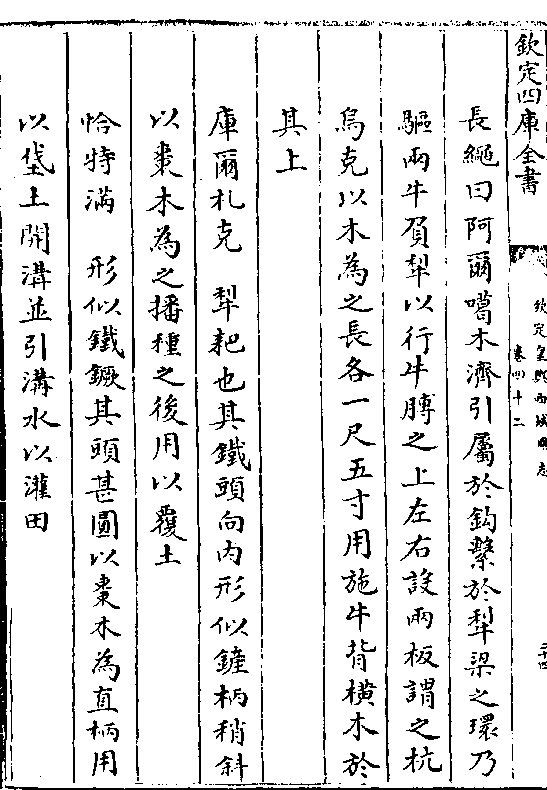 欽定四庫全書
欽定皇輿西域圖志
卷四十二
二十四
長繩曰阿爾噶木濟引屬於鈎繫於犁梁之環乃
驅兩牛負犁以行牛膊之上左右設兩板謂之杭
烏克以木為之長各一尺五寸用施牛背横木於
其上
庫爾札克　犁耙也其鐵頭向内形似鏟柄稍斜
以棗木為之播種之後用以覆土
恰特滿　形似鐵鐝其頭甚圓以棗木為直柄用
以垡土開溝並引溝水以灌田